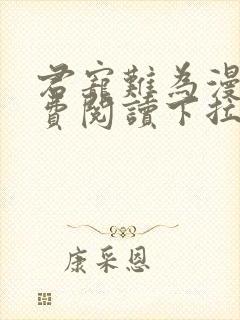 君寵難為漫
費閱讀下拉
康采恩